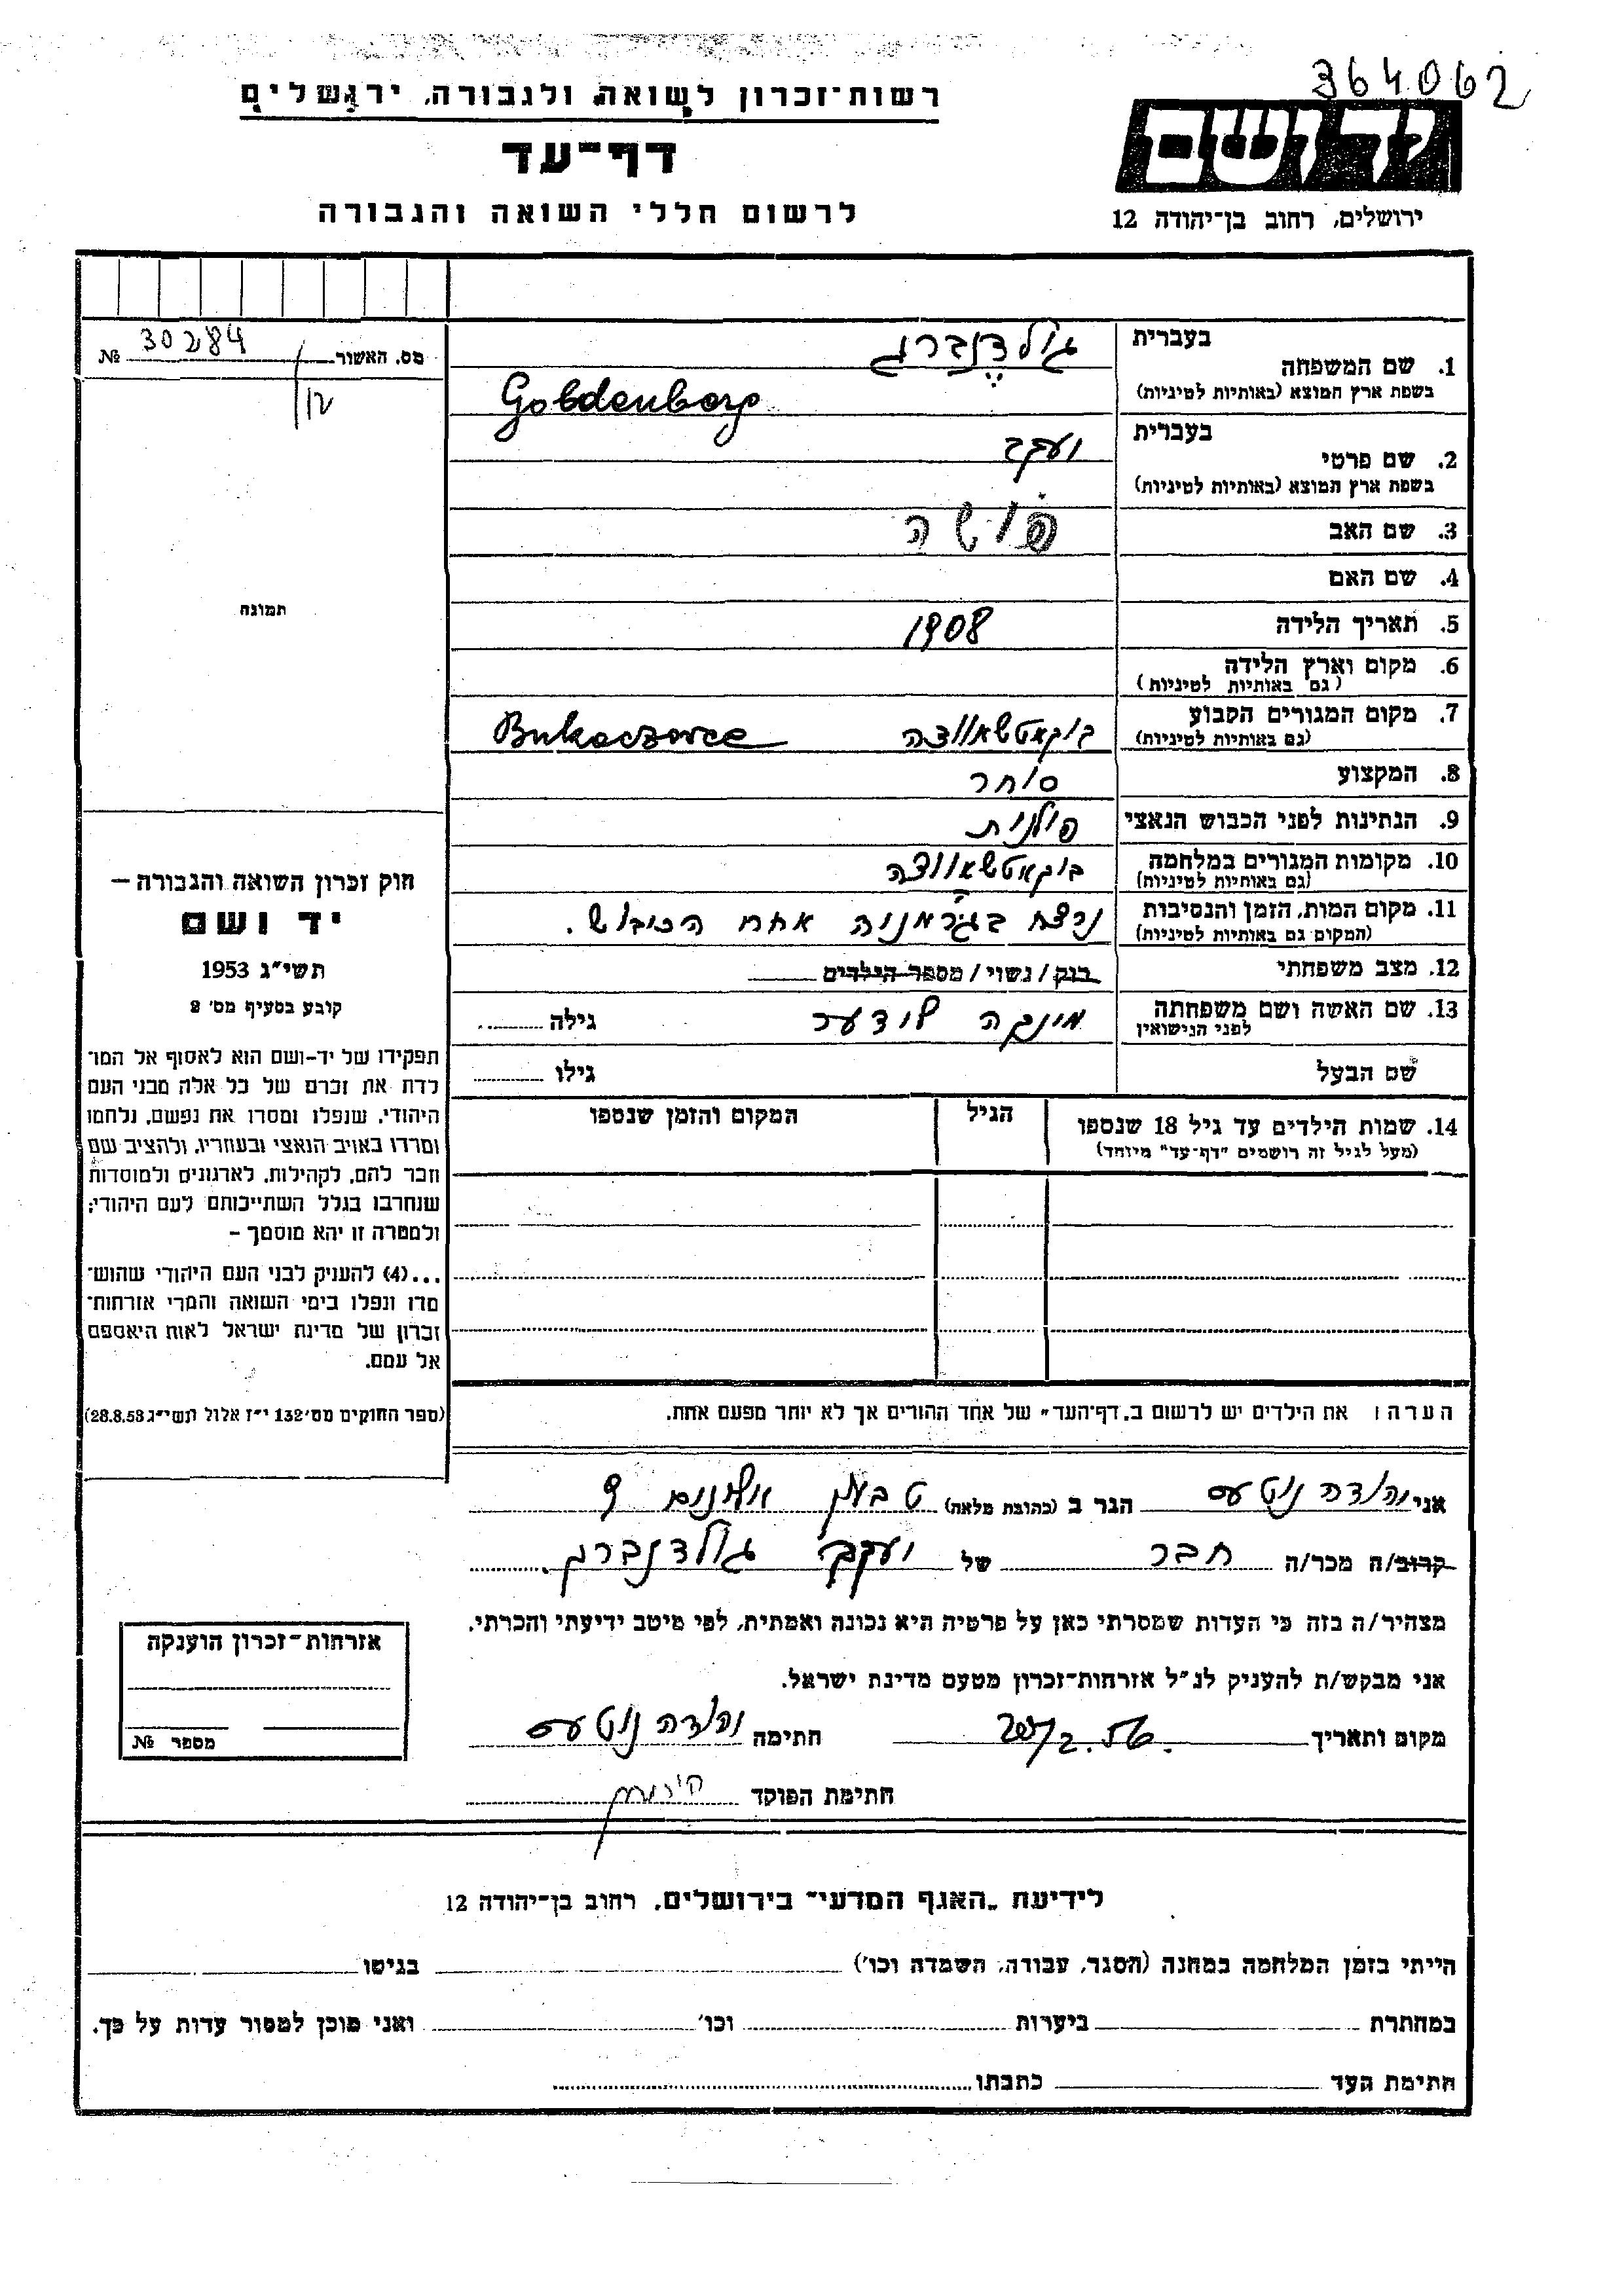 364062
רשות-זכרון לשואה ולגבורה, ירושלים
ידושם
דף-עד
לרשום חללי השואה והגבורה
ירושלים, רחוב בן-יהודה 12
מס. האשור № 30284
1. שם המשפחה בעברית גולדנברג
בשפת ארץ המוצא (באותיות לטיניות) Goldenberg
2. שם פרטי בעברית יעקב
בשפת ארץ המוצא (באותיות לטיניות)
3. שם האב משה
4. שם האם
תמונה
5. תאריך הלידה 1908
6. מקום וארץ הלידה
(גם באותיות לטיניות)
7. מקום המגורים הקבוע בוקאטשאווצה Bukaczowce
(גם באותיות לטיניות)
8. המקצוע סוחר
9. הנתינות לפני הכבוש הנאצי פולנית
10. מקומות המגורים במלחמה בוקאטשאווצה
(גם באותיות לטיניות)
11. מקום המות, הזמן והנסיבות נרצח בגרמניה אחרי הכיבוש.
(המקום גם באותיות לטיניות)
12. מצב משפחתי רווק / נשוי / מספר הילדים
13. שם האשה ושם משפחתה לפני הנישואין גילה
שם הבעל גילו
14. שמות הילדים עד גיל 18 שנספו הגיל המקום והזמן שנספו
(מעל לגיל זה רושמים "דף-עד" מיוחד)
חוק זכרון השואה והגבורה —
יד ושם
תשי"ג 1953
קובע בסעיף מס' 2
תפקידו של יד-ושם הוא לאסוף אל המו־
לדת את זכרם של כל אלה מבני העם
היהודי, שנפלו ומסרו את נפשם, נלחמו
ומרדו באויב הנאצי ובעוזריו, ולהציב שם
וזכר להם, לקהילות, לארגונים ולמוסדות
שנחרבו בגלל השתייכותם לעם היהודי;
ולמטרה זו יהא מוסמך –
...(4) להעניק לבני העם היהודי שהוש־
מדו ונפלו בימי השואה והמרי אזרחות־
זכרון של מדינת ישראל לאות היאספם
אל עמם.
(ספר החוקים מס' 132 י"ז אלול תשי"ג 28.8.53)
הערה: את הילדים יש לרשום ב„דף-העד" של אחד ההורים אך לא יותר מפעם אחת.
אני יהודה הגר ב (כתובת מלאה)
קרוב/ה מכר/ה חבר של יעקב גולדנברג.
מצהיר/ה בזה כי העדות שמסרתי כאן על פרטיה היא נכונה ואמתית, לפי מיטב ידיעתי והכרתי.
אני מבקש/ת להעניק לנ"ל אזרחות-זכרון מטעם מדינת ישראל.
מקום ותאריך חתימה יהודה
חתימת הפוקד
אזרחות-זכרון הוענקה
מספר №
לידיעת „האגף המדעי" בירושלים, רחוב בן-יהודה 12
הייתי בזמן המלחמה במחנה (הסגר, עבודה, השמדה וכו') בגיטו
במחתרת ביערות וכו' ואני מוכן למסור עדות על כך.
חתימת העד כתבתו